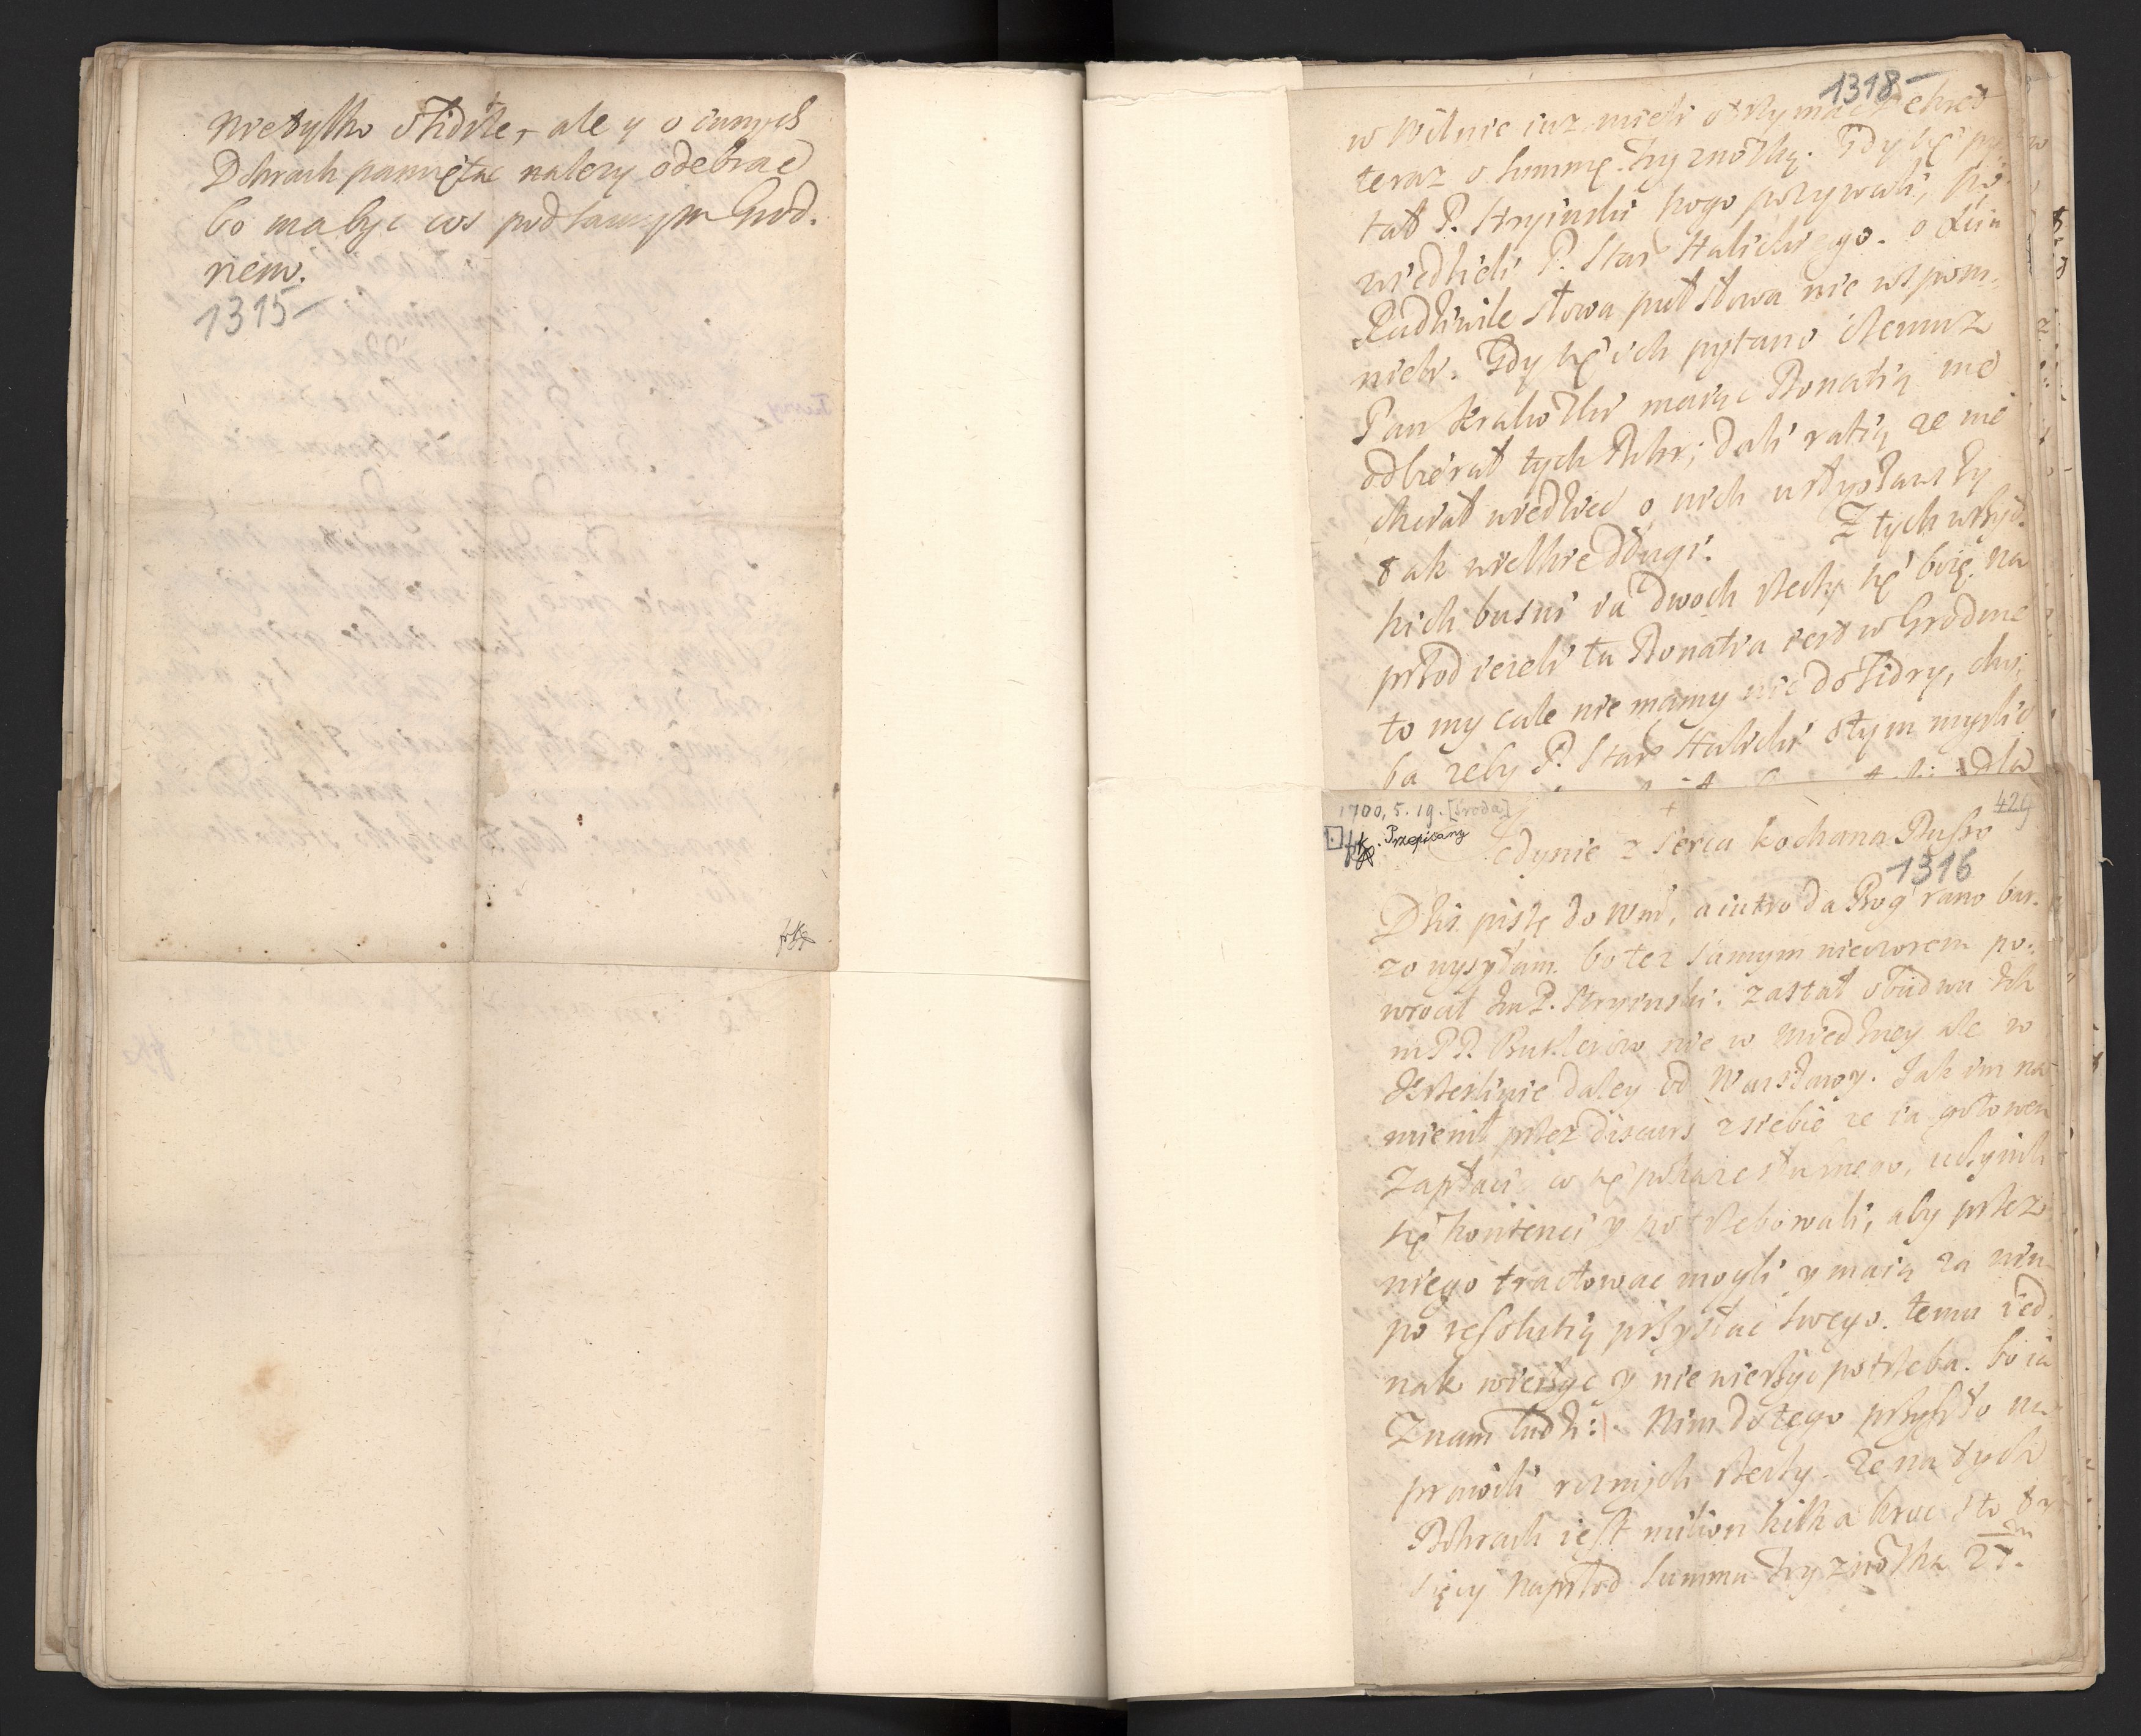 nietylko o Sidrze, ale y o innych
Dobrach pamiętac nalezy odebrac
bo ma byc cos pod samym Grod.
nem.
1315
1318
w Wilnie iuz mieli otrzymac Dekret
teraz o summę Tryznoską. Gdy się py.
tał P. Stryinski kogo pozywali, po.
wiedzieli P. Star Halickiego. o Xiu
Radziwile słowa puł słowa nie wspom.
nieli. Gdy się ich pytano czemuz
Pan Krakoski maiąc Donatią nie
odbierał tych Dobr; dali ratią ze nie
chciał wiedziec o nich usłyszawszy
tak wielkie długi. Z tych wszyt.
kich busni ia dwoch rzeczy się boię. na
przod iezeli ta Donatia iest w Grodnie
to my cale nie mamy nic do Sidry, chy.
ba zeby P. Star Halicki o tym myslił
dla
1700, 5. 19. [środa]
429
Przepisany
+
Jedynie z serca kochana Dusso
1316
Dzis piszę do Wm, a iutro da Bog rano bar.
zo wysyłam. bo tez samym wieczorem po.
wrocił Im P. Stryinski. zastał obudwu Ich
m PP. Butlerow nie w Miedzney ale w
Kterlinie daley od Warszawy. Jak im na
mienił przez discurs z siebie ze ia gotowem
Zapłaci co się pokaze słusznego, uczynili
się kontenci y potrzebowali, aby przez
niego tractowac mogli y maią za nim
po resolutią przysłac swego. temu ied.
nak wierzyc y nie wierzyc potrzeba. bo ia
Znam ludzi. Nim do tego przyszło na
prawili roznych rzeczy. ze na tych
Dobrach iest milion kilka kroc sto ty
sięcy naprzod summa Tryznoska 27 m